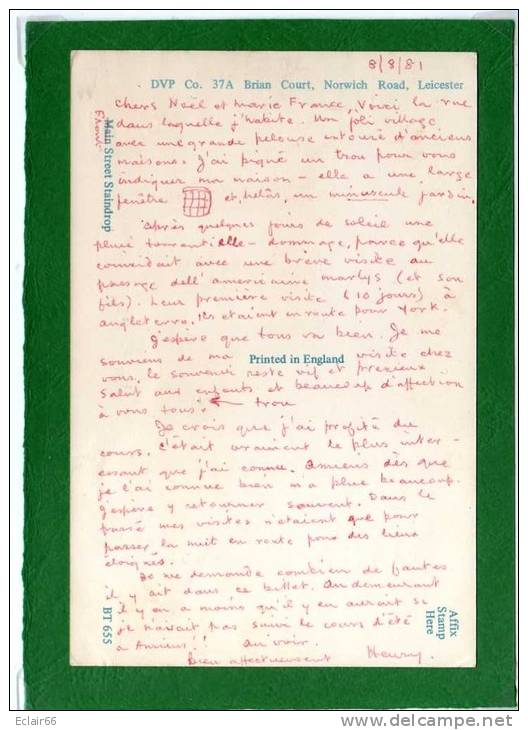 8/8/81
DVP Co. 37A Brian Court, Norwich Road, Leicester
Chers Noël et Marie France, Voici la rue
dans laquelle j'habite. Un joli village
avec une grande pelouse entouré d'anciens
maisons. J'ai piqué un trou pour vous
indiquer ma maison - elle a une large
fenêtre et, hélas, un minuscule jardin.
Main Street Staindrop
Après quelques jours de soleil une
pluie torrentielle - dommage, parce qu'elle
coincidait avec une brève visite au
passage dell' americaine Marlys (et son
fils). Leur première visite (10 jours) à
Angleterre. Ils étaient en route pour York.
J'espère que tous va bien. Je me
souviens de ma visite chez
Printed in England
vous, le souvenir reste vif et precieux
Salut aux enfants et beaucoup d'affection
à vous tous. ← trou
Je crois que j'ai profité du
cours. C'était vraiment le plus inter-
essant que j'ai connu. Amiens dès que
je l'ai connue bien m'a plue beaucoup.
J'espère y retourner souvent. Dans le
passé mes visites n'etaient que pour
passer la nuit en route pour des lieux
éloignés.
Je me demande combien de fautes
il y ait dans ce billet. Au demeurant
il y en a moins qu'il y en aurait si
je n'avait pas suivi le cours d'été
à Amiens!! Au voir.
bien affectueusement Henry.
Affix
Stamp
Here
BT 655
Eclair66